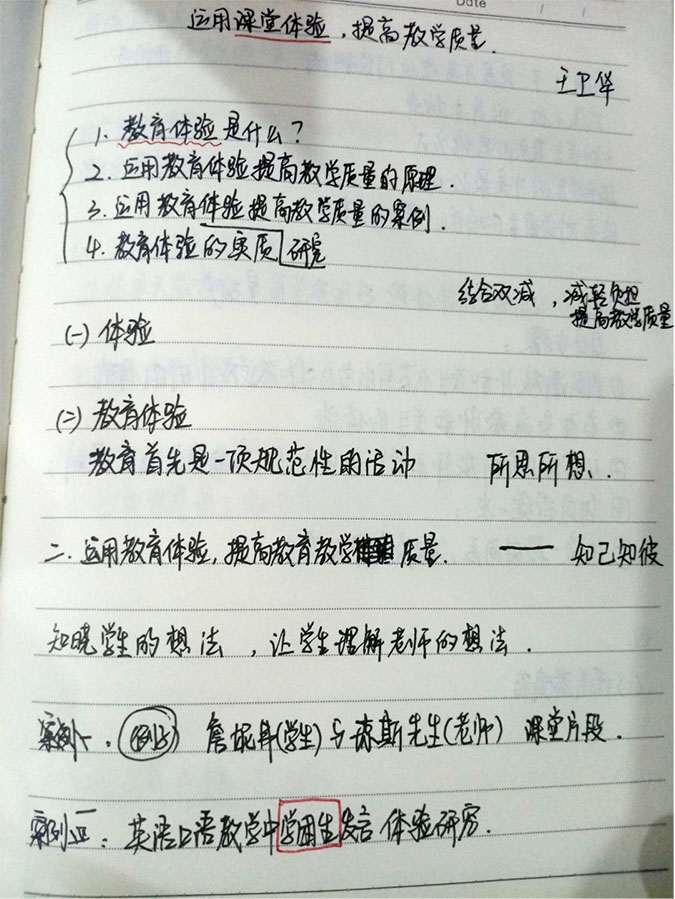 Date / /
运用课堂体验，提高教学质量.
王卫华
1. 教育体验是什么？
2. 运用教育体验提高教学质量的原理.
3. 运用教育体验提高教学质量的案例.
4. 教育体验的实质研究
结合双减，减轻负担
提高教学质量
(一) 体验
(二) 教育体验
教育首先是一项规范性的活动 所思所想、
二. 运用教育体验，提高教育教学质量. —— 知己知彼
知晓学生的想法，让学生理解老师的想法.
案例一. (例子) 詹妮弗(学生)与 斯先生(老师) 课堂片段.
案例二: 英语口语教学中学困生发言体验研究.